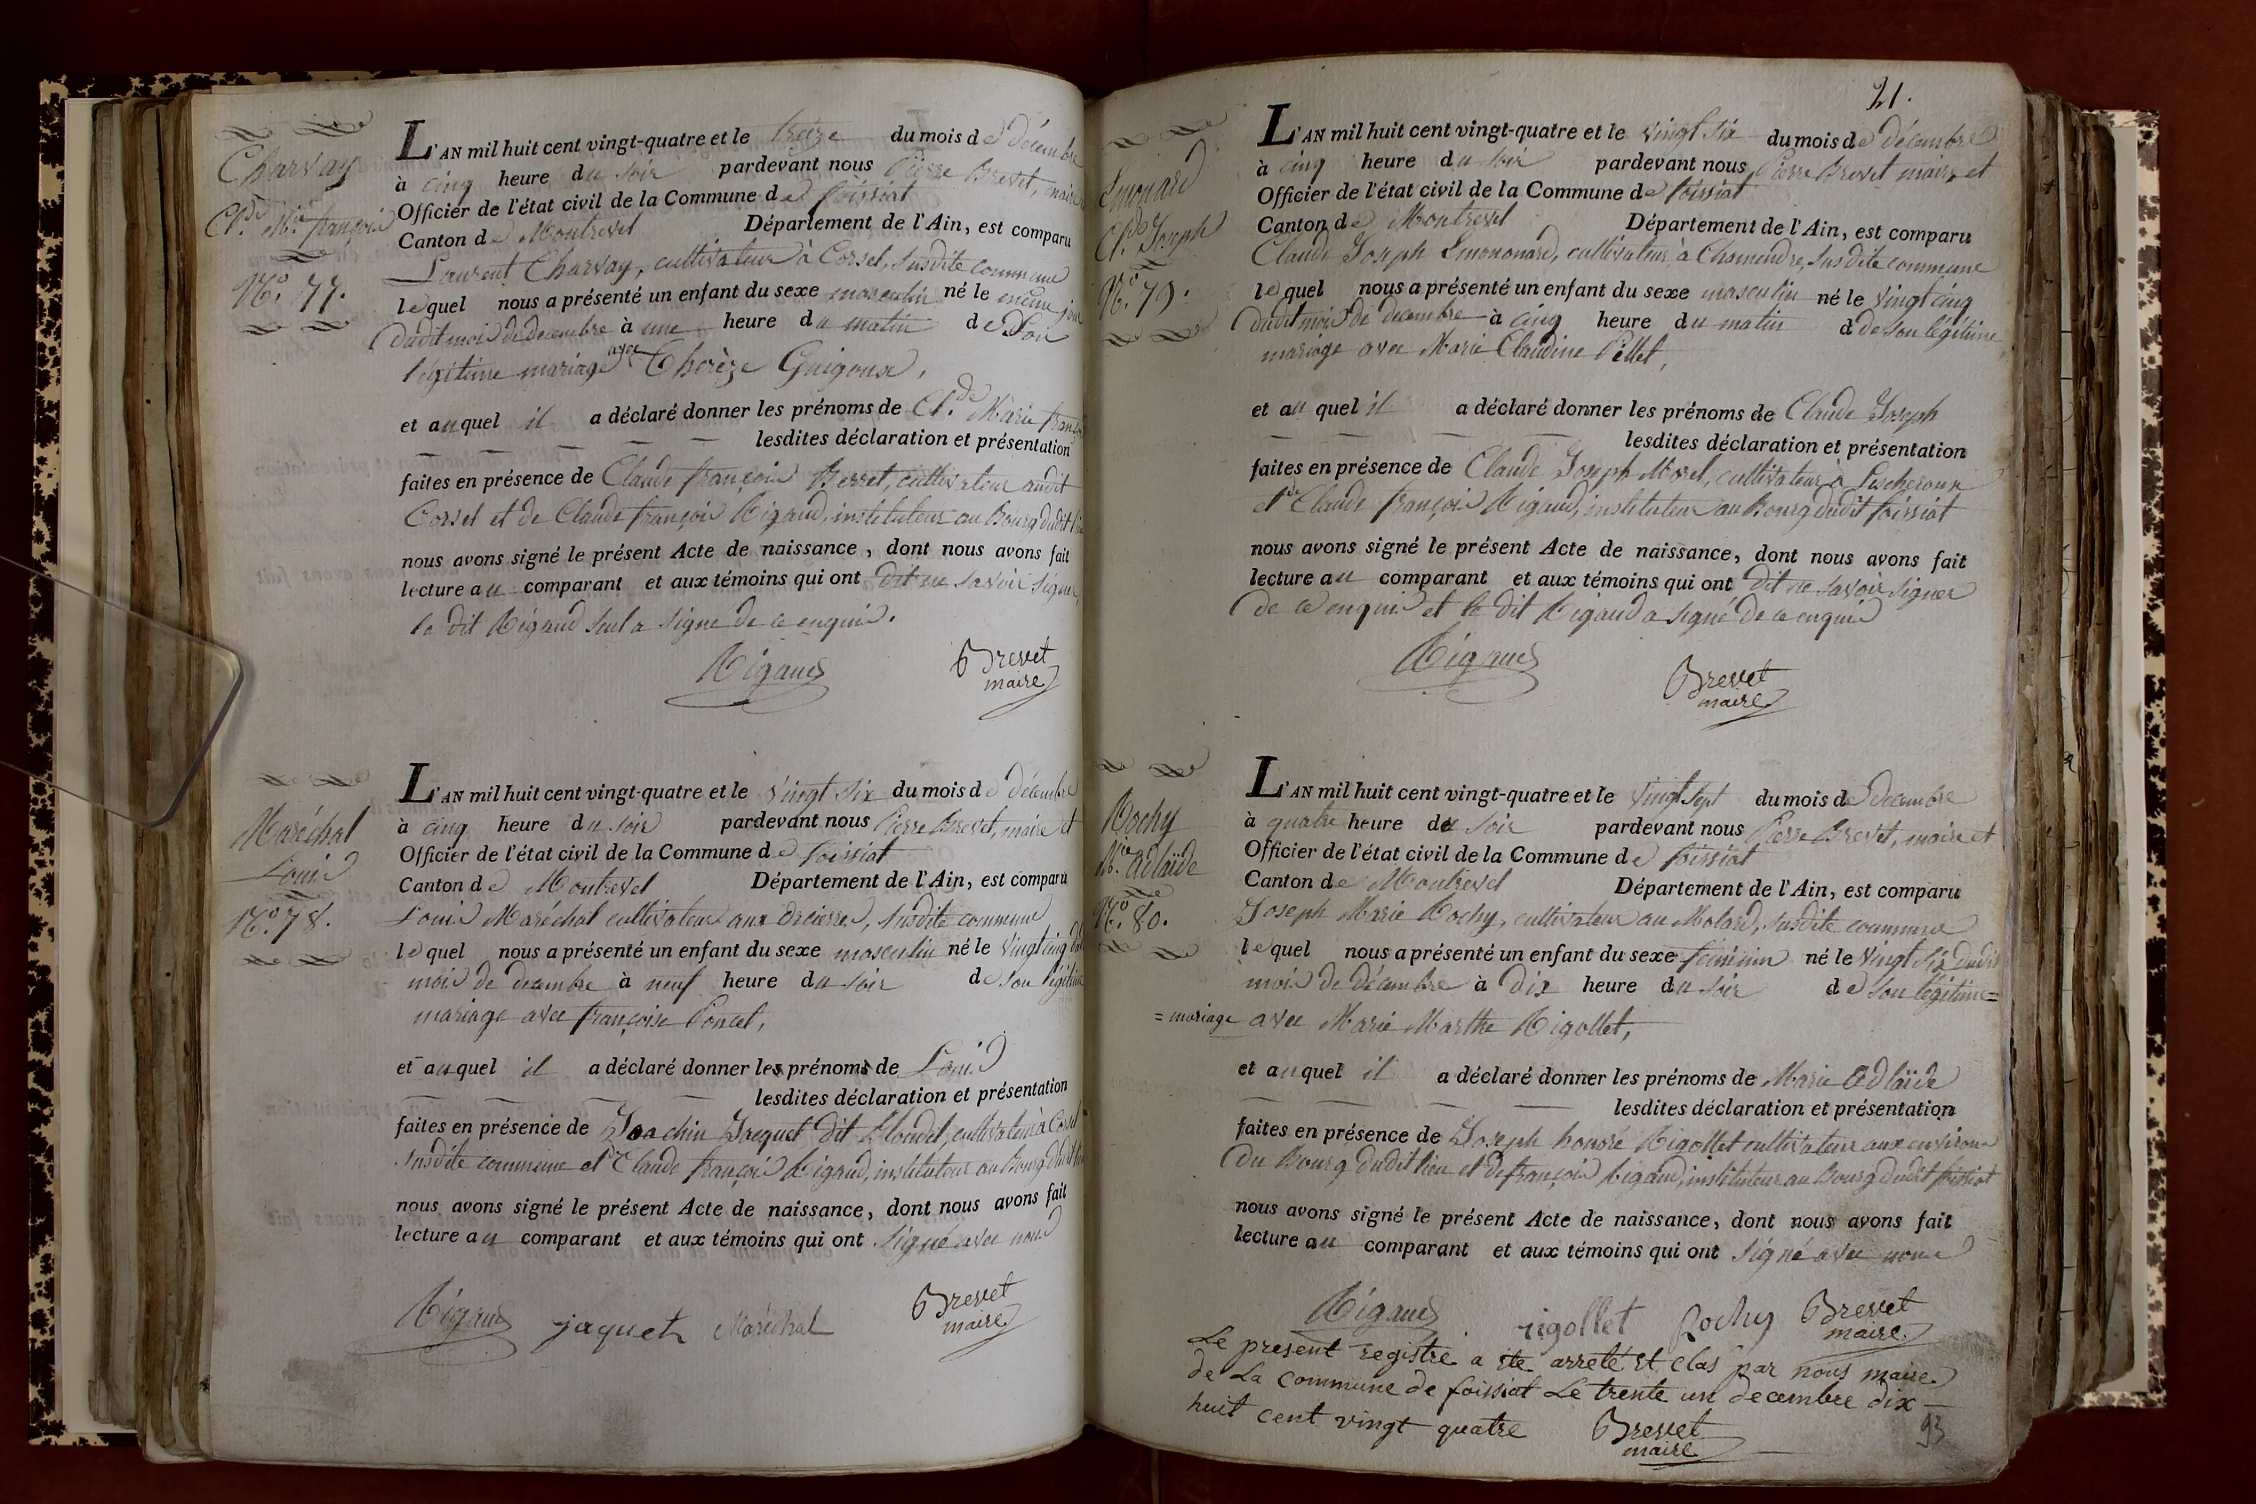 Charvay
Cl.de M.ie françois
N.o 77.
L'AN mil huit cent vingt-quatre et le treize du mois de décembre
à cinq heure du soir pardevant nous Pierre Brevet, maire
Officier de l'état civil de la Commune de foissiat
Canton de Montrevel Département de l'Ain, est comparu
Laurent Charvay, cultivateur à Corsel, susdite commune
lequel nous a présenté un enfant du sexe masculin né le même jour
dudit mois de decembre à une heure du matin de Son
légitime mariage avec Therèze Guigoux,
et auquel il a déclaré donner les prénoms de Cl.de Marie françois
lesdites déclaration et présentation
faites en présence de Claude françois cultivateur audit
Corsel et de Claude françois Rigaud, instituteur au Bourg dudit lieu
nous avons signé le présent Acte de naissance, dont nous avons fait
lecture au comparant et aux témoins qui ont dit ne savoir signer,
le dit Rigaud seul a signé de ce enquis.
Rigaud Brevet
maire
Maréchal
Louis
N.o 78.
L'AN mil huit cent vingt-quatre et le vingt six du mois de décembre
à cinq heure du soir pardevant nous Pierre Brevet, maire et
Officier de l'état civil de la Commune de foissiat
Canton de Montrevel Département de l'Ain, est comparu
Louis Maréchal cultivateur aux susdite commune
lequel nous a présenté un enfant du sexe masculin né le vingt cinq du
mois de decembre à neuf heure du soir de son légitime
mariage avec françoise Poncet,
et auquel il a déclaré donner les prénoms de Louis
lesdites déclaration et présentation
faites en présence de Joachin Jaquet dit Blondet, cultivateur à Corsel
susdite commune et Claude françois Rigaud, instituteur au Bourg dudit lieu
nous avons signé le présent Acte de naissance, dont nous avons fait
lecture au comparant et aux témoins qui ont signé avec nous
Rigaud jaquet Maréchal Brevet
maire
21.
Cl.de Joseph
N.o 79.
L'AN mil huit cent vingt-quatre et le vingt six du mois de décembre
à cinq heure du soir pardevant nous Pierre Brevet maire et
Officier de l'état civil de la Commune de foissiat
Canton de Montrevel Département de l'Ain, est comparu
Claude Joseph cultivateur à Chamendre, susdite commune
lequel nous a présenté un enfant du sexe masculin né le vingt cinq
dudit mois de decembre à cinq heure du matin d de son légitime
mariage avec Marie Claudine Pellet,
et au quel il a déclaré donner les prénoms de Claude Joseph
lesdites déclaration et présentation
faites en présence de Claude Joseph Morel, cultivateur à Lescheroux
et de Claude françois Rigaud, instituteur au Bourg dudit foissiat
nous avons signé le présent Acte de naissance, dont nous avons fait
lecture au comparant et aux témoins qui ont dit ne savoir signer
de ce enquis et le dit Rigaud a signé de ce enquis
Rigaud Brevet
maire
Rochy
M.ie adlaïde
N.o 80.
L'AN mil huit cent vingt-quatre et le vingt sept du mois de decembre
à quatre heure du soir pardevant nous Pierre Brevet, maire et
Officier de l'état civil de la Commune de foissiat
Canton de Montrevel Département de l'Ain, est comparu
Joseph Marie Rochy, cultivateur au Molard, susdite commune
lequel nous a présenté un enfant du sexe féminin né le vingt six dudit
mois de décembre à dix heure du soir de son légitime=
=mariage avec Marie Marthe Rigollet,
et auquel il a déclaré donner les prénoms de Marie adlaïde
lesdites déclaration et présentation
faites en présence de Joseph honoré Rigollet cultivateur aux environs
du Bourg dudit lieu et de françois Rigaud, instituteur au Bourg dudit foissiat
nous avons signé le présent Acte de naissance, dont nous avons fait
lecture au comparant et aux témoins qui ont signé avec nous
Rigaud rigollet Rochy Brevet
maire
Le present registre a ete arreté et clos par nous maire
de La Commune de foissiat Le trente un decembre dix
huit cent vingt quatre Brevet
maire
93